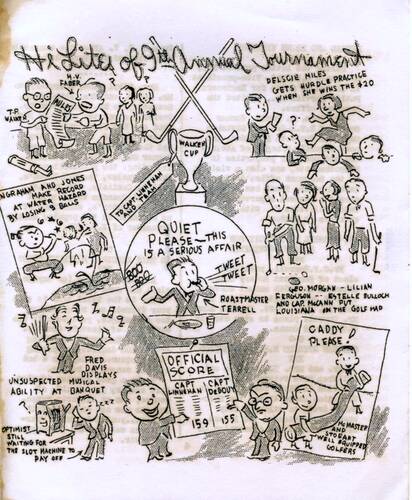 Hi Lites of 9th Annual Tournament
H.V.
FABER
T.P.
RULES
?
DELSCIE MILES
GETS HURDLE PRACTICE
WHEN SHE WINS THE $20
?
WALKER
CUP
TO CAPT. LINNEHAN
AND TEAM
INGRAHAM AND JONES
MAKE RECORD
AT WATER HAZARD
BY LOSING 9 BALLS
QUIET
PLEASE—THIS
IS A SERIOUS AFFAIR
BOO
BOO
TWEET
TWEET
ROASTMASTER
TERRELL
GEO. MORGAN - LILIAN
FERGUSON -- ESTELLE BULLOCH
AND CAP. McCANN PUT
LOUISIANA ON THE GOLF MAP
FRED
DAVIS
DISPLAYS
UNSUSPECTED MUSICAL
ABILITY AT BANQUET
OFFICIAL
SCORE
CAPT
LINNEHAN
CAPT
DEBOUY
159
155
OPTIMIST
STILL
WAITING FOR
THE SLOT MACHINE TO
PAY OFF
ZZZZ
CADDY
PLEASE!
McMASTER
AND
STODART
WELL EQUIPPED
GOLFERS